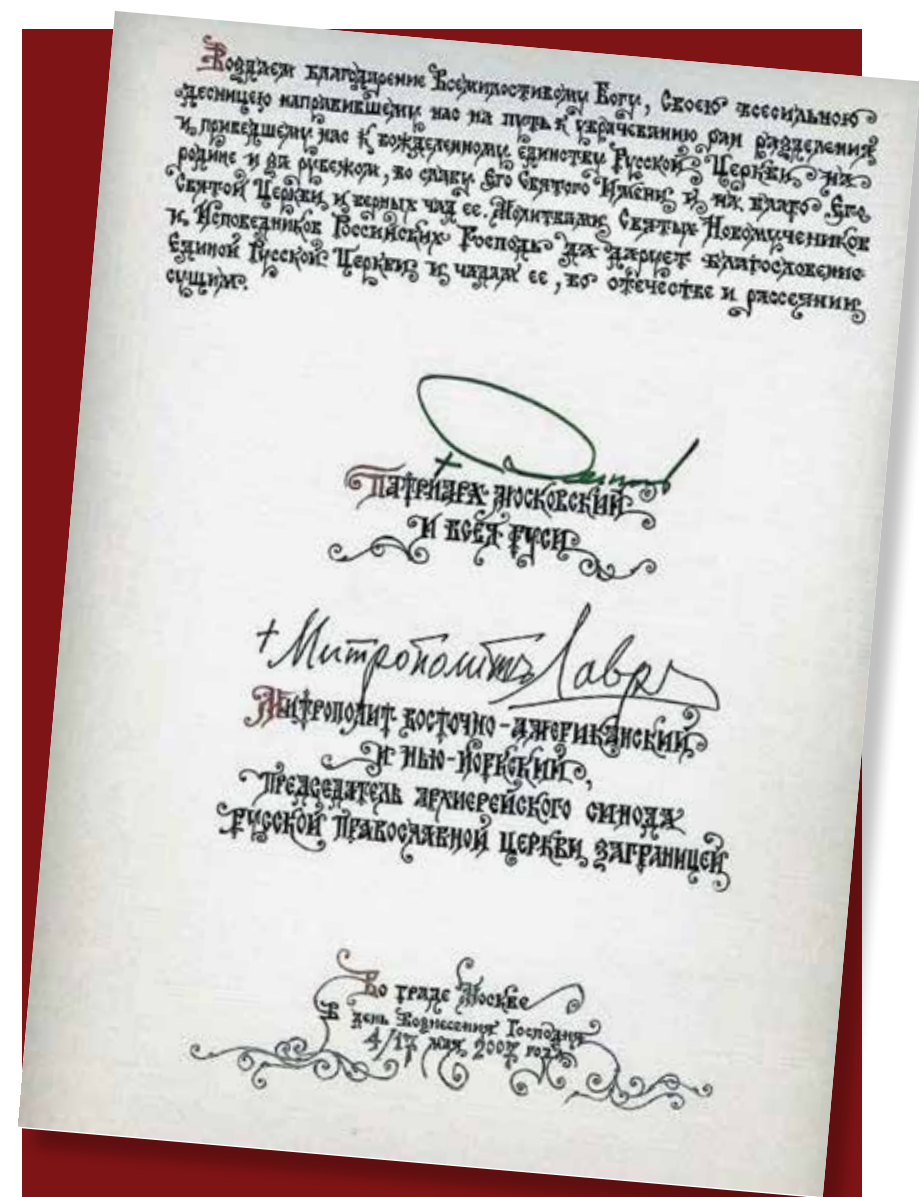 Воздаем благодарение Всемилостивому Богу, Своею всесильною
десницею направившему нас на путь к уврачеванию ран разделения
и приведшему нас к вожделенному единству Русской Церкви на
родине и за рубежом, во славу Его Святого Имени и на благо Его
Святой Церкви и верных чад ее. Молитвами Святых Новомучеников
и Исповедников Российских Господь да дарует благословение
Единой Русской Церкви и чадам ее, во отечестве и рассеянии
сущим.
Патриарх Московский
и всея Руси
+ Митрополитъ Лавръ
Митрополит Восточно-Американский
и Нью-Йоркский,
председатель Архиерейского Синода
Русской Православной Церкви Заграницей
Во граде Москве
В день Вознесения Господня
4/17 мая 2007 года